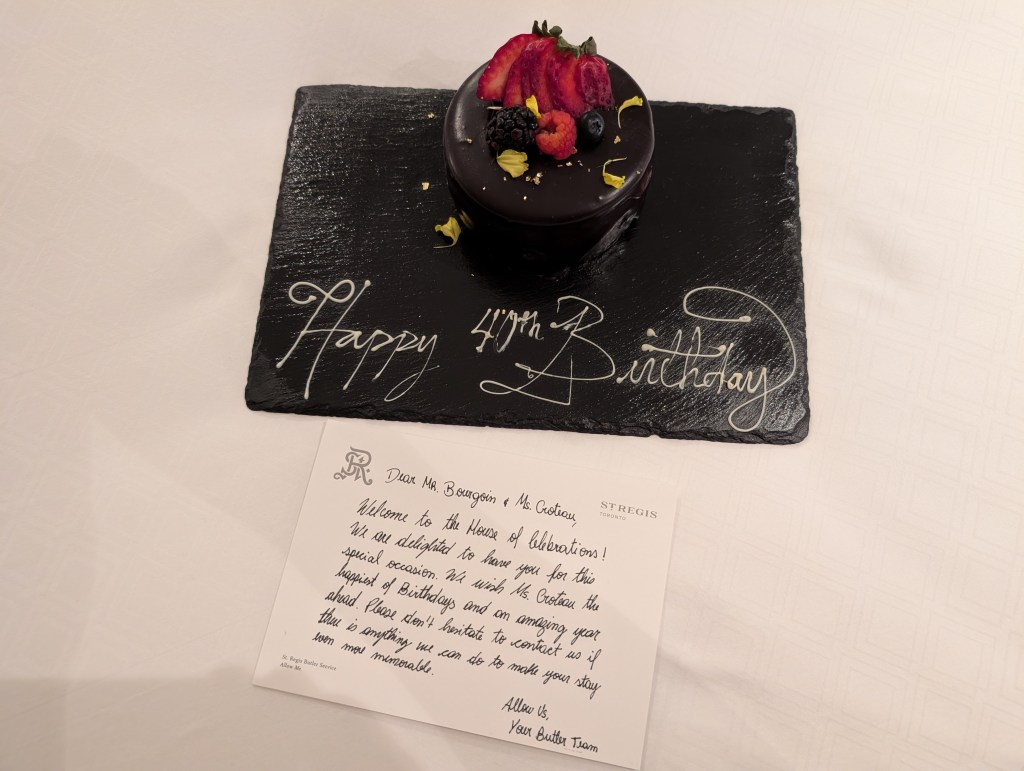 Happy 47th Birthday
Dear Mr. Bourgoin & Ms. Croteau,
ST REGIS
TORONTO
Welcome to the House of Celebrations!
We are delighted to have you for this
special occasion. We wish Ms. Croteau the
happiest of Birthdays and an amazing year
ahead. Please don't hesitate to contact us if
there is anything we can do to make your stay
even more memorable.
St. Regis Butler Service
Allow Me
Allow Us,
Your Butler Team